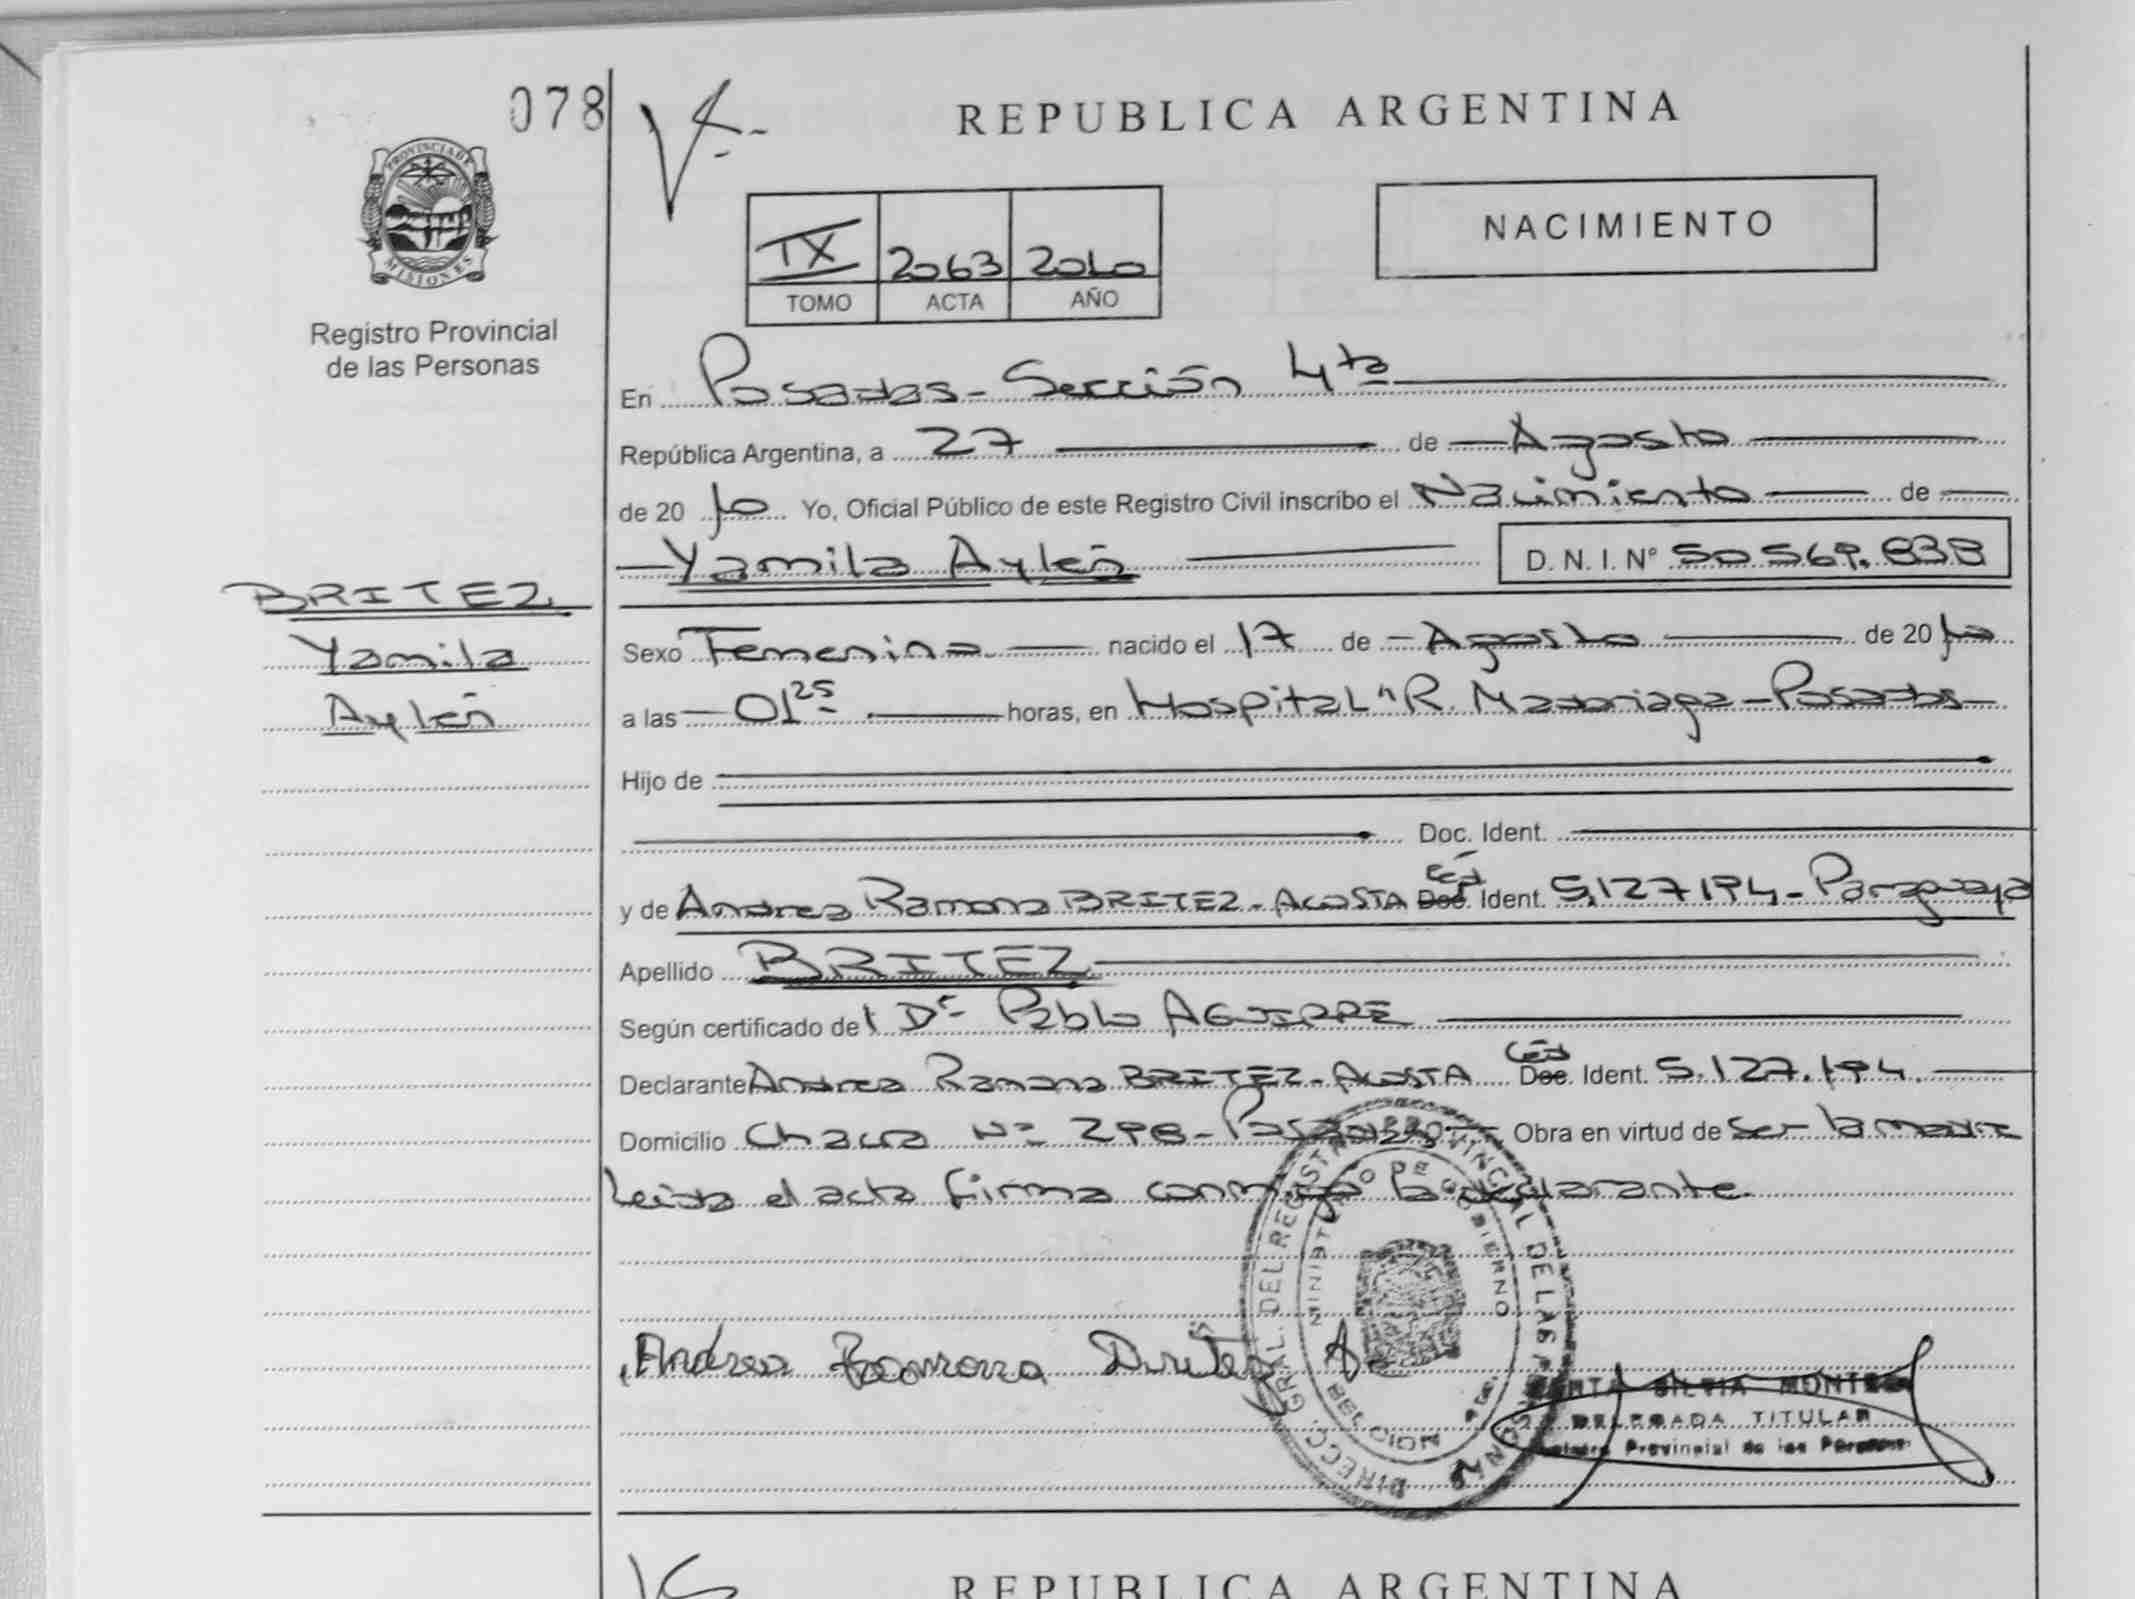 078
REPUBLICA ARGENTINA
PROVINCIA DE
MISIONES
Registro Provincial
de las Personas
IX 2063 2010
TOMO ACTA AÑO
NACIMIENTO
En Posadas - Sección 4ta
República Argentina, a 27 de Agosto
de 20 10 Yo, Oficial Público de este Registro Civil inscribo el Nacimiento de
Yamila Aylén D. N. I. Nº 50 569.838
BRITEZ
Yamila
Aylén
Sexo Femenino nacido el 17 de Agosto de 20 10
a las 01 25 horas, en Hospital "R. Madariaga - Posadas -
Hijo de
Doc. Ident.
y de Andrea Ramona BRITEZ - ACOSTA Céd Doc. Ident. 5.127194 - Paraguaya
Apellido BRITEZ
Según certificado del Dr. Pablo AGUIRRE
Declarante Andrea Ramona BRITEZ - ACOSTA Céd Doc. Ident. 5.127.194.
Domicilio Chacra Nº 298 - Posadas Obra en virtud de ser la madre
Leída el acta firma conmigo la declarante.
DIRECC. GRAL. DEL REGISTRO PROVINCIAL DE LAS PERSONAS
MINISTERIO DE GOBIERNO
Andrea Ramona Britez A
SILVIA
DELEGADA TITULAR
Registro Provincial de las Personas
REPUBLICA ARGENTINA